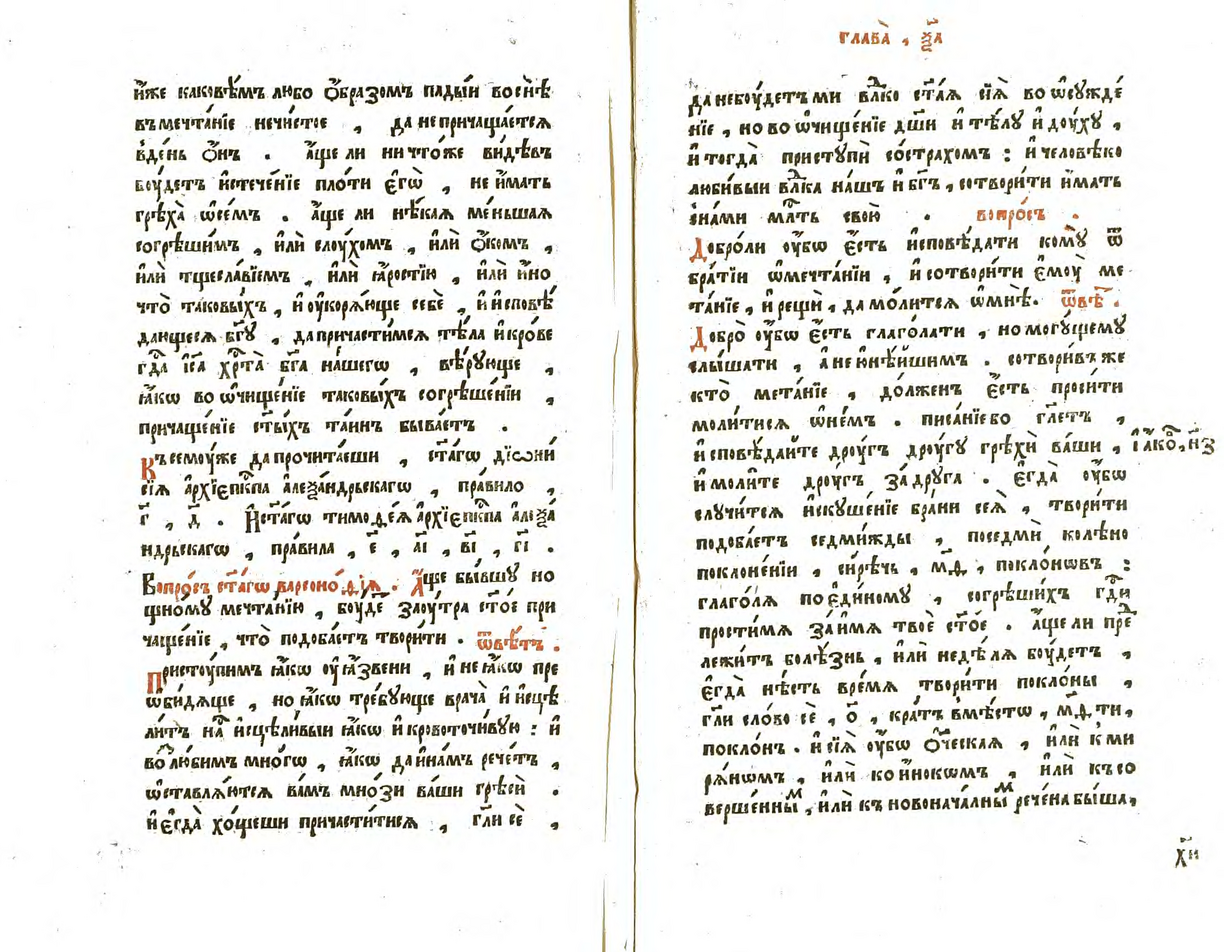 и҆́же каковѣ́мъ любо ѻ҆́бразомъ пады́и во снѣ̀
въ мечта́нїе нечи́стое , да не причаща́ется
в̾ де́нь ѻ҆́нъ . а҆́ще ли ничто́же ви́дѣвъ
бꙋ́детъ и҆стече́нїе пло́ти є҆гѡ̀ , не и҆́мать
грѣха̀ ѡ҆ се́мъ . а҆́ще ли нѣ́кая ме́ньшая
согрѣши́мъ , и҆лѝ слоу́хомъ , и҆лѝ ѻ҆́комъ ,
и҆лѝ тщесла́вїемъ , и҆лѝ ꙗ҆́ростїю , и҆лѝ и҆́но
что̀ таковы́хъ , и҆ оу҆коря́юще себѐ , и҆ и҆сповѣ́
дающеся бг҃ꙋ , да причасти́мся тѣ́ла и҆ кро́ве
гдⷭ҇а і҆са хрⷭ҇та̀ бг҃а на́шегѡ , вѣ́рꙋюще ,
ꙗ҆́кѡ во ѡ҆чище́нїе таковы́хъ согрѣше́нїи ,
причаще́нїе ст҃ы́хъ та́инъ быва́етъ .
Къ семоу́же да прочита́еши , ст҃а́гѡ дїѡни́
сїѧ а҆рхїепⷭ҇кпа а҆леѯа́ндрьскагѡ , пра́вило ,
г҃ , д҃ . И҆ ст҃а́гѡ тимоѳе́ѧ а҆рхїепⷭ҇кпа а҆леѯа́
ндрьскагѡ , пра́вила , є҃ , а҃і , в҃і , г҃і .
Вопро́съ ст҃а́гѡ варсоно́фїѧ . А҆́ще бы́вшꙋ но
щно́мꙋ мечта́нїю , бꙋ́де зау́тра ст҃о́е при
чаще́нїе , что̀ подоба́етъ твори́ти . ѿвѣ́тъ .
Пристоу́пимъ ꙗ҆́кѡ оу҆ꙗ҆́звени , и҆ не ꙗ҆́кѡ пре
ѡби́дяще , но ꙗ҆́кѡ тре́бꙋюще врача̀ и҆ и҆сцѣ
ли́тъ на́съ и҆сцѣли́выи ꙗ҆́кѡ и҆ кровоточи́вꙋю : и҆
во́ любимъ мно́гѡ , ꙗ҆́кѡ да и҆ на́мъ рече́тъ ,
ѡ҆ставля́ются ва́мъ мно́зи ва́ши грѣсѝ .
и҆ є҆гда̀ хо́щеши причасти́тися , гл҃и сѐ ,
глава̀ , ѯ҃а
да не бꙋ́детъ ми влⷣко ст҃а́я сїѧ̀ во ѡ҆сꙋжде́
нїе , но во ѡ҆чище́нїе дш҃и и҆ тѣ́лꙋ и҆ дꙋ́хꙋ ,
и҆ тогда̀ пристꙋпѝ со стра́хомъ : и҆ человѣ́ко
люби́выи влⷣка на́шъ и҆ бг҃ъ , сотвори́ти и҆́мать
с на́ми млⷭ҇ть свою̀ . вопро́съ .
Добро́ ли оу҆́бѡ є҆́сть и҆сповѣ́дати комꙋ̀ ѿ
бра́тїи ѡ҆ мечта́нїи , и҆ сотвори́ти є҆моу̀ ме
та́нїе , и҆ рещѝ , да мо́лится ѡ҆ мнѣ̀ . ѿвѣ́ .
Добро̀ оу҆́бѡ є҆́сть глаго́лати , но могꙋ́щемꙋ
слы́шати , а҆ не ю҆нѣ́йшимъ . сотвори́въ же
кто̀ мета́нїе , до́лженъ є҆́сть проси́ти
моли́тися ѡ҆ не́мъ . писа́нїе бо гл҃етъ ,
и҆сповѣ́дайте дроу́гъ дроу́гꙋ грѣхѝ ва́ши , і҆а́ко, н҃з
и҆ моли́те дроу́гъ за́ дрꙋга . Є҆гда̀ оу҆́бѡ
слꙋчи́тся и҆скꙋше́нїе бра́ни сея̀ , твори́ти
подоба́етъ седми́жды , по седми́ колѣ́но
поклоне́нїи , си́рѣчь , м҃ѳ , покло́нѡвъ :
глаго́ля по є҆ди́номꙋ , согрѣши́хъ гдⷭ҇и
прости́ мѧ за и҆́мѧ твоѐ ст҃о́е . а҆́ще ли пре
лежи́тъ болѣ́знь , и҆лѝ недѣ́лѧ бꙋ́детъ ,
є҆гда̀ нѣ́сть вре́мя твори́ти покло́ны ,
гл҃и сло́во сѐ , о҃ , кра́тъ вмѣ́стѡ , м҃ѳ ти ,
покло́нъ . и҆ сїѧ̀ оу҆́бѡ ѻ҆ч҃еская , и҆лѝ к ми
ря́нѡмъ , и҆лѝ ко и҆́нокѡмъ , и҆лѝ къ со
верше́нныⷨ , и҆лѝ къ новонача́лныⷨ рече́на бы́ша ,
х҃и